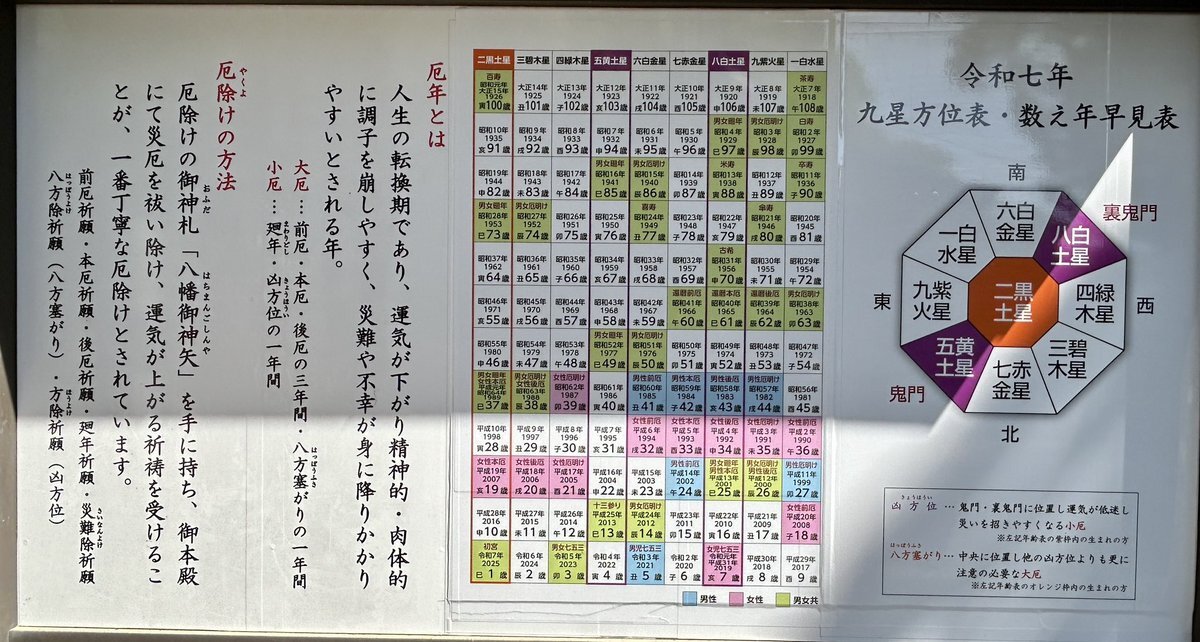 令和七年
九星方位表・数え年早見表
南
六白金星
八白土星
裏鬼門
一白水星
東
九紫火星
二黒土星
四緑木星
西
五黄土星
三碧木星
鬼門
七赤金星
北
凶方位…鬼門・裏鬼門に位置し運気が低迷し
災いを招きやすくなる小厄
※左記年齢表の紫枠内の生まれの方
八方塞がり…中央に位置し他の凶方位よりも更に
注意の必要な大厄
※左記年齢表のオレンジ枠内の生まれの方
二黒土星 三碧木星 四緑木星 五黄土星 六白金星 七赤金星 八白土星 九紫火星 一白水星
百寿 茶寿
昭和元年 大正15年 大正14年 大正13年 大正12年 大正11年 大正10年 大正9年 大正8年 大正7年
1926 1925 1924 1923 1922 1921 1920 1919 1918
寅100歳 丑101歳 子102歳 亥103歳 戌104歳 酉105歳 申106歳 未107歳 午108歳
男女廻年 男女厄明け 白寿
昭和10年 昭和9年 昭和8年 昭和7年 昭和6年 昭和5年 昭和4年 昭和3年 昭和2年
1935 1934 1933 1932 1931 1930 1929 1928 1927
亥91歳 戌92歳 酉93歳 申94歳 未95歳 午96歳 巳97歳 辰98歳 卯99歳
男女廻年 男女厄明け 米寿 卒寿
昭和19年 昭和18年 昭和17年 昭和16年 昭和15年 昭和14年 昭和13年 昭和12年 昭和11年
1944 1943 1942 1941 1940 1939 1938 1937 1936
申82歳 未83歳 午84歳 巳85歳 辰86歳 卯87歳 寅88歳 丑89歳 子90歳
男女廻年 男女厄明け 喜寿 傘寿
昭和28年 昭和27年 昭和26年 昭和25年 昭和24年 昭和23年 昭和22年 昭和21年 昭和20年
1953 1952 1951 1950 1949 1948 1947 1946 1945
巳73歳 辰74歳 卯75歳 寅76歳 丑77歳 子78歳 亥79歳 戌80歳 酉81歳
古希
昭和37年 昭和36年 昭和35年 昭和34年 昭和33年 昭和32年 昭和31年 昭和30年 昭和29年
1962 1961 1960 1959 1958 1957 1956 1955 1954
寅64歳 丑65歳 子66歳 亥67歳 戌68歳 酉69歳 申70歳 未71歳 午72歳
還暦前厄 還暦本厄 還暦後厄 男女厄明け
昭和46年 昭和45年 昭和44年 昭和43年 昭和42年 昭和41年 昭和40年 昭和39年 昭和38年
1971 1970 1969 1968 1967 1966 1965 1964 1963
亥55歳 戌56歳 酉57歳 申58歳 未59歳 午60歳 巳61歳 辰62歳 卯63歳
男女廻年 男女厄明け
昭和55年 昭和54年 昭和53年 昭和52年 昭和51年 昭和50年 昭和49年 昭和48年 昭和47年
1980 1979 1978 1977 1976 1975 1974 1973 1972
申46歳 未47歳 午48歳 巳49歳 辰50歳 卯51歳 寅52歳 丑53歳 子54歳
男女廻年 男女厄明け
女性本厄 女性後厄 女性厄明け 男性前厄 男性本厄 男性後厄 男性厄明け
平成元年 昭和64年 昭和63年 昭和62年 昭和61年 昭和60年 昭和59年 昭和58年 昭和57年 昭和56年
1989 1988 1987 1986 1985 1984 1983 1982 1981
巳37歳 辰38歳 卯39歳 寅40歳 丑41歳 子42歳 亥43歳 戌44歳 酉45歳
女性前厄 女性本厄 女性後厄 女性厄明け 女性前厄
平成10年 平成9年 平成8年 平成7年 平成6年 平成5年 平成4年 平成3年 平成2年
1998 1997 1996 1995 1994 1993 1992 1991 1990
寅28歳 丑29歳 子30歳 亥31歳 戌32歳 酉33歳 申34歳 未35歳 午36歳
男女廻年 男女厄明け
女性本厄 女性後厄 女性厄明け 男性前厄 男性本厄 男性後厄 男性厄明け
平成19年 平成18年 平成17年 平成16年 平成15年 平成14年 平成13年 平成12年 平成11年
2007 2006 2005 2004 2003 2002 2001 2000 1999
亥19歳 戌20歳 酉21歳 申22歳 未23歳 午24歳 巳25歳 辰26歳 卯27歳
十三参り 男女厄明け 女性前厄
平成28年 平成27年 平成26年 平成25年 平成24年 平成23年 平成22年 平成21年 平成20年
2016 2015 2014 2013 2012 2011 2010 2009 2008
申10歳 未11歳 午12歳 巳13歳 辰14歳 卯15歳 寅16歳 丑17歳 子18歳
初宮 男女七五三 男児七五三 女児七五三
令和7年 令和6年 令和5年 令和4年 令和3年 令和2年 令和元年 平成31年 平成30年 平成29年
2025 2024 2023 2022 2021 2020 2019 2018 2017
巳1歳 辰2歳 卯3歳 寅4歳 丑5歳 子6歳 亥7歳 戌8歳 酉9歳
男性 女性 男女共
厄年とは
人生の転換期であり、運気が下がり精神的・肉体的
に調子を崩しやすく、災難や不幸が身に降りかかり
やすいとされる年。
大厄…前厄・本厄・後厄の三年間・八方塞がりの一年間
小厄…廻年・凶方位の一年間
厄除けの方法
厄除けの御神札「八幡御神矢」を手に持ち、御本殿
にて災厄を祓い除け、運気が上がる祈祷を受けるこ
とが、一番丁寧な厄除けとされています。
前厄祈願・本厄祈願・後厄祈願・廻年祈願・災難除祈願
八方除祈願（八方塞がり）・方除祈願（凶方位）